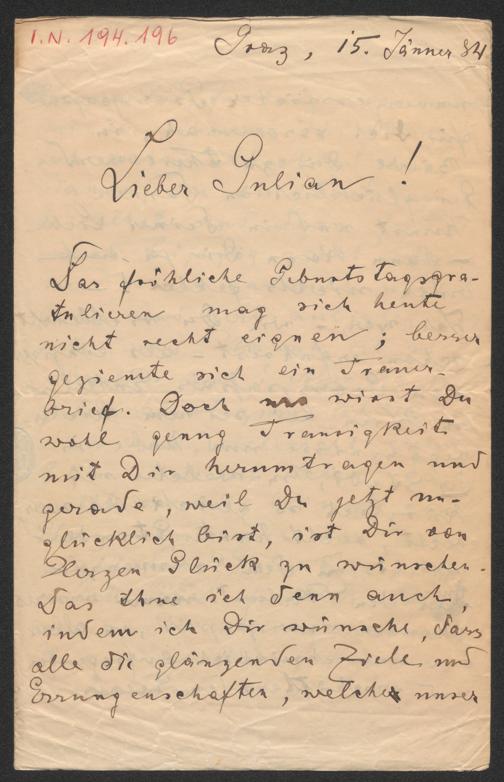 I.N. 194.196
Graz, 15. Jänner 84
Lieber Julian!
Das fröhliche Geburtstagsgra-
tulieren mag sich heute
nicht recht eignen; besser
geziemte sich ein Trauer-
brief. Doch wirst Du
wohl genug Traurigkeit
mit Dir herumtragen und
gerade, weil Du jetzt un-
glücklich bist, ist Dir von
Herzen Glück zu wünschen.
Das thue ich denn auch,
indem ich Dir wünsche, dass
alle die glänzenden Ziele und
Errungenschaften, welche unser